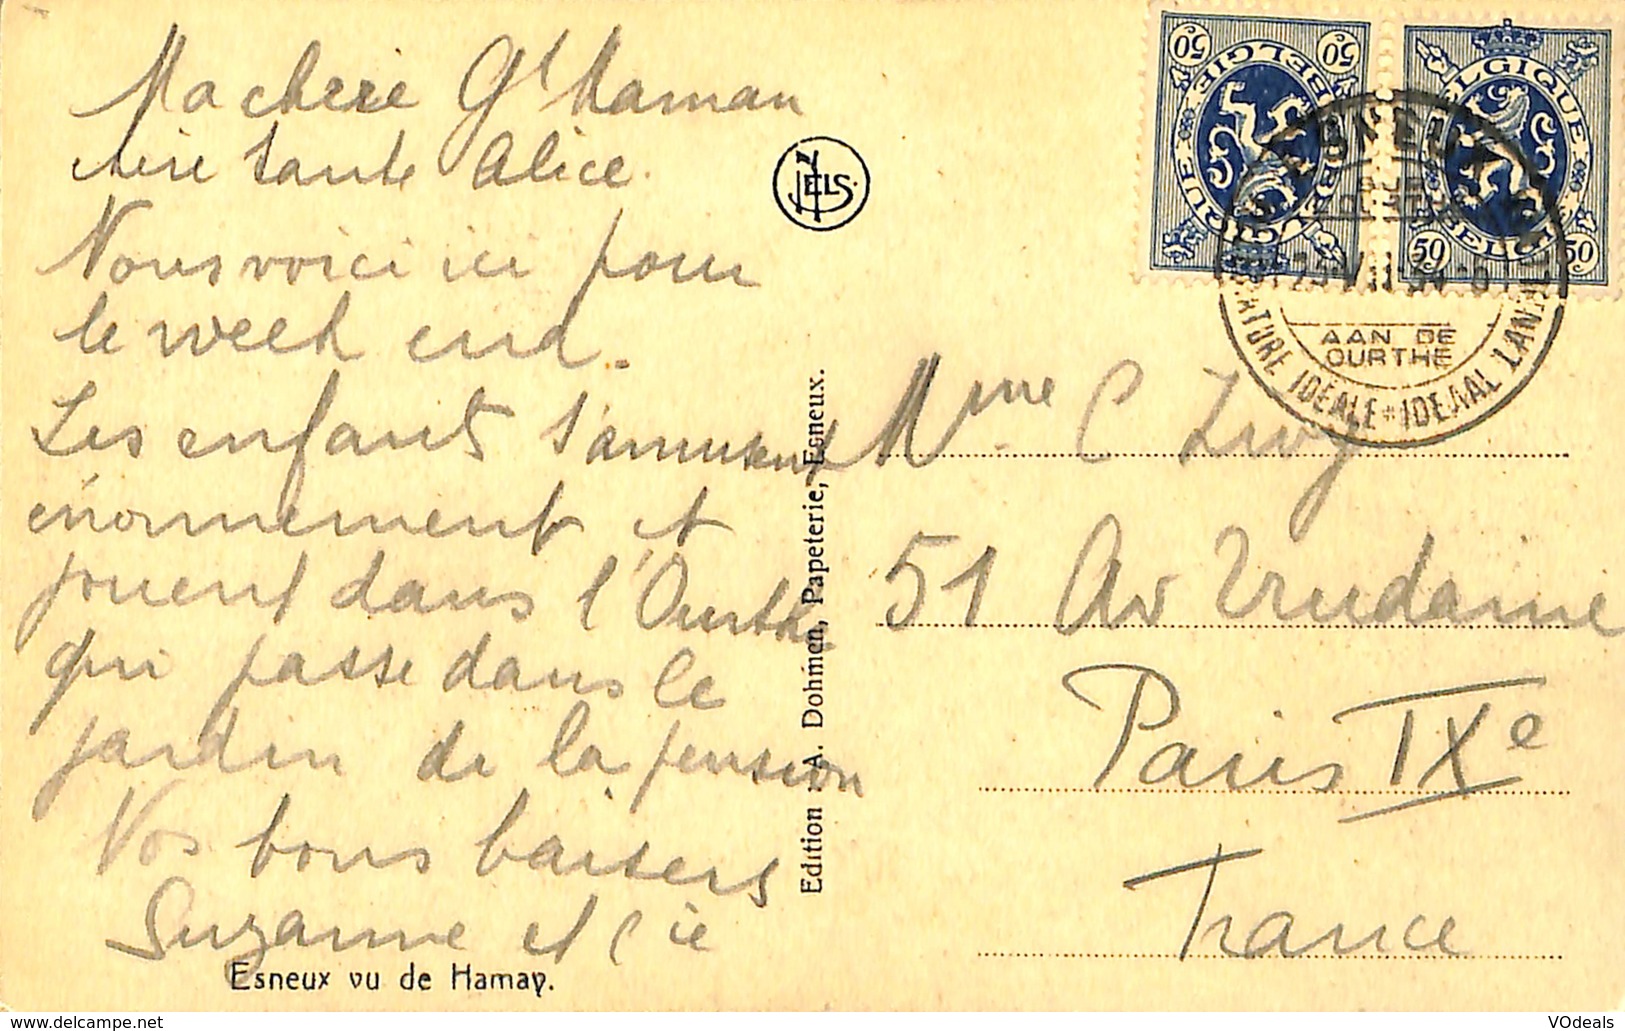 Ma chere Gd Maman
chere tante Alice.
Nous voici ici pour
le week end.
Les enfants s'amusent
énormement et
jouent dans l'Ourthe
qui passe dans le
jardin de la pension
Nos bons baisers
Suzanne et Cie
Esneux vu de Hamay.
NELS.
Edition A. Dohmen, Papeterie, Esneux.
50 50
BELGIQUE
BELGIQUE BELGIE
50 50
ESNEUX
AAN DE
OURTHE
IDÉALE * IDEAAL
Mme C Levy
51 Av Trudaine
Paris IXe
France
VOdeals
https://www.delcampe.net/en_US/collections/store/VOdeals